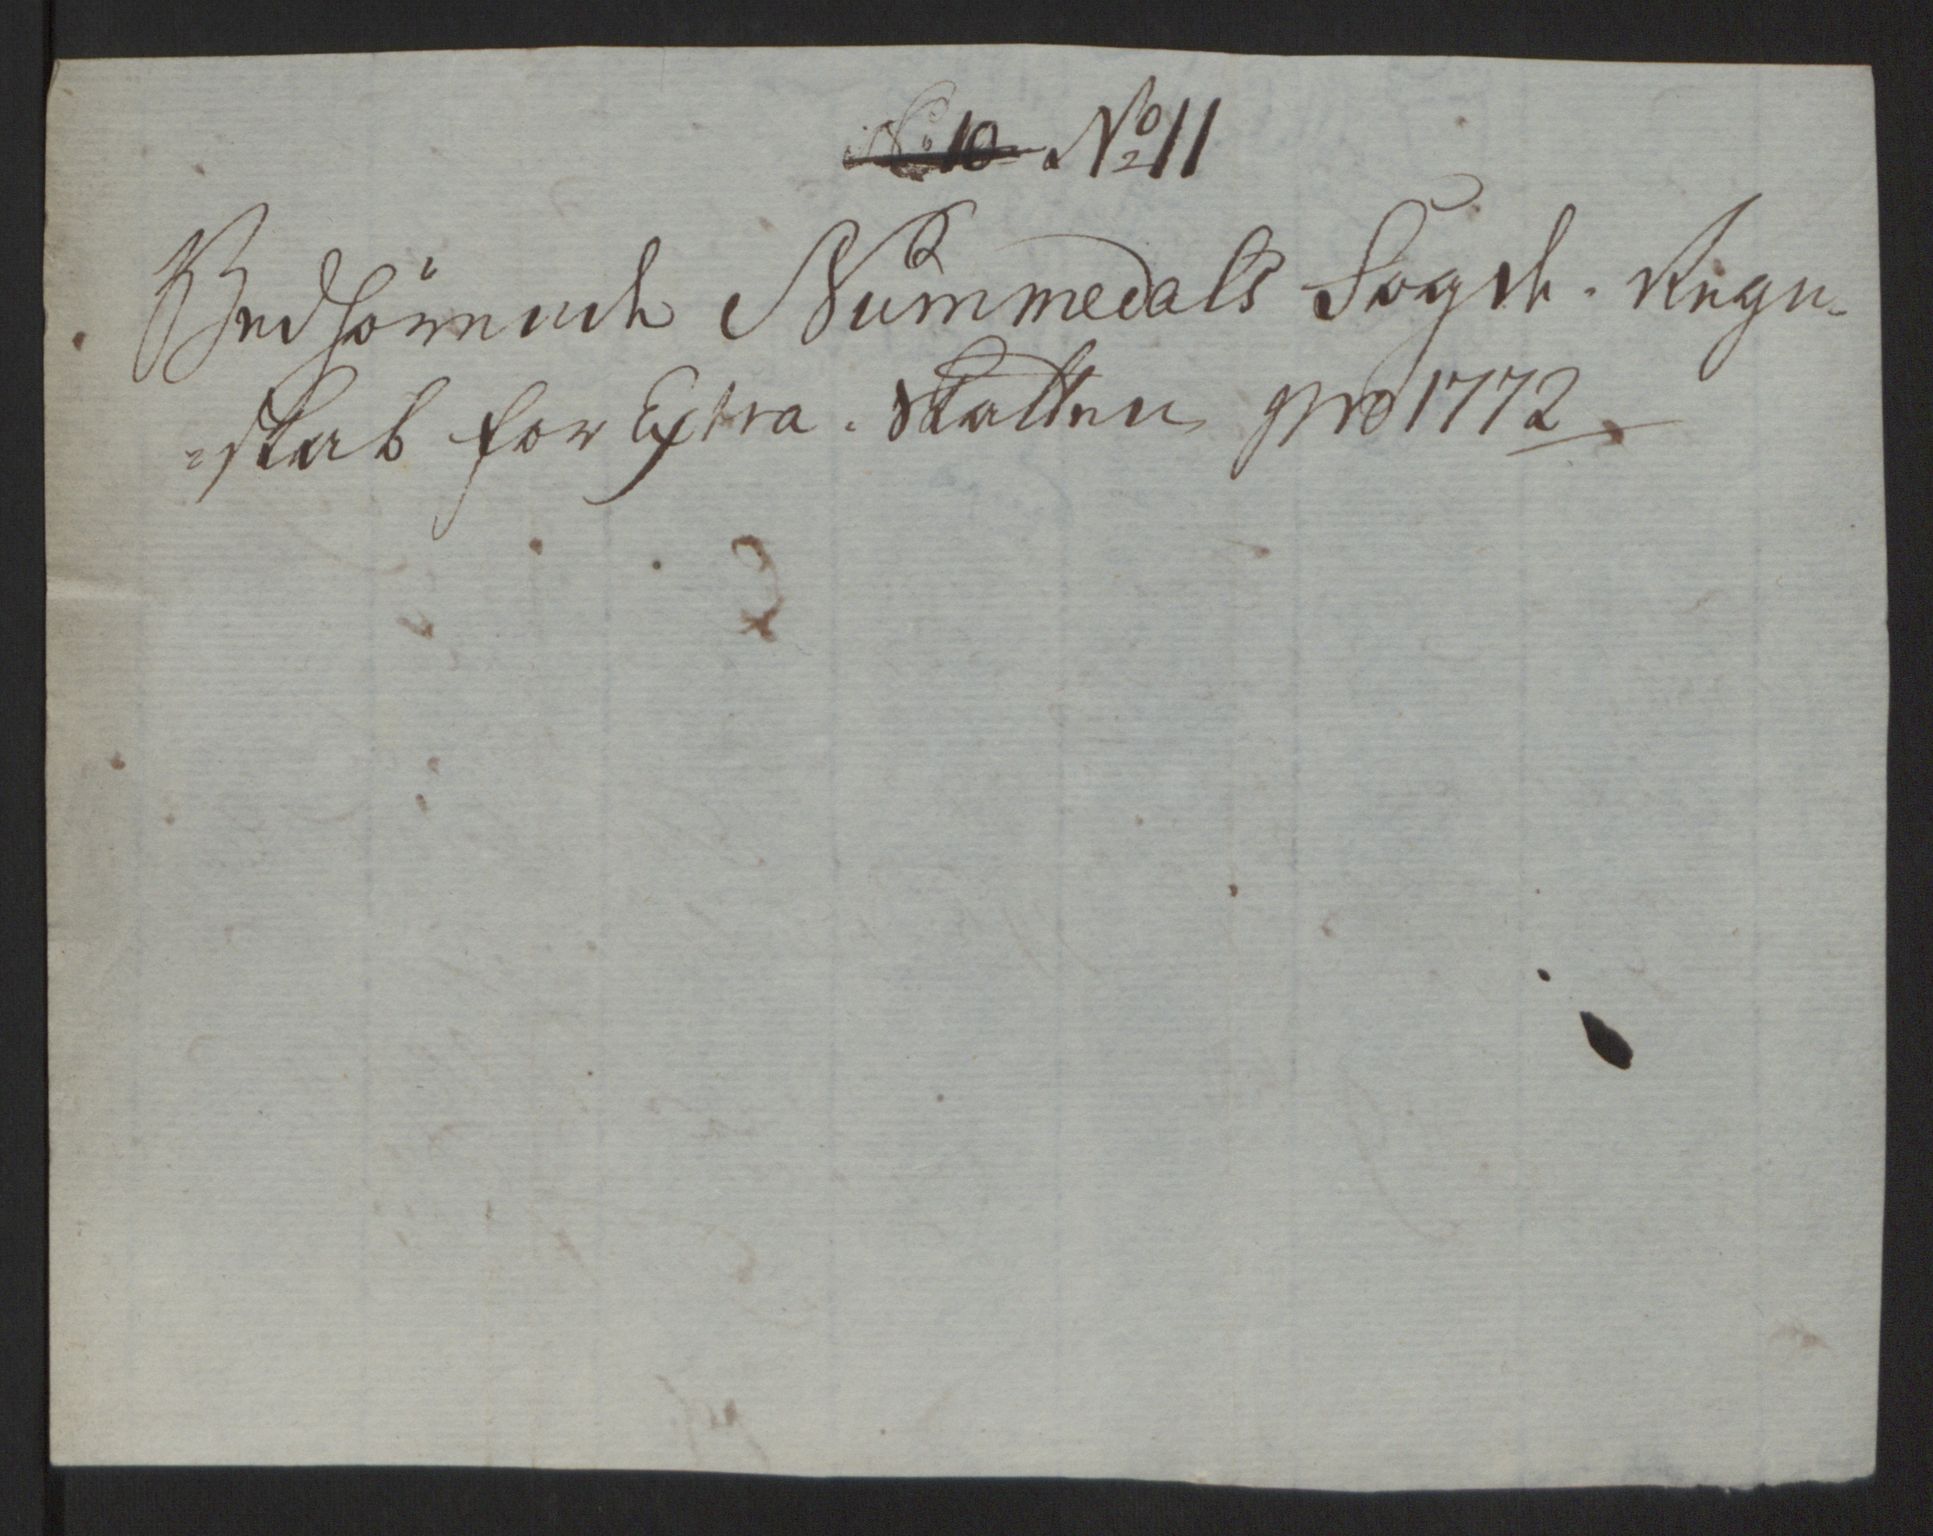 N: 10 No 11
Vedhörende Nummedals Fogd. Regn-
=skab for Extra. Skatten pro 1772